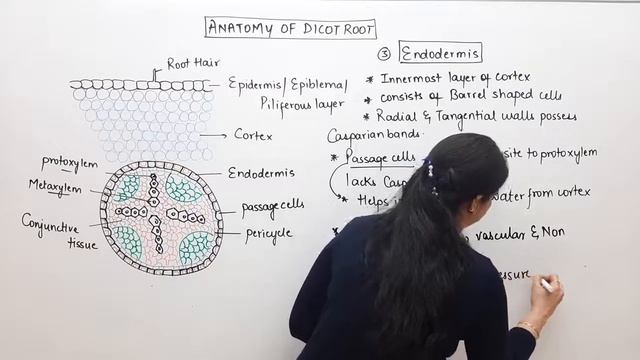 ANATOMY OF DICOT ROOT
Root Hair
Epidermis/Epiblema/
Piliferous layer
Cortex
protoxylem
Metaxylem
Conjunctive
tissue
Endodermis
passage cells
pericycle
③ Endodermis
* Innermost layer of cortex
* consists of Barrel shaped cells
* Radial & Tangential walls possess
Casparian bands.
* Passage cells site to protoxylem
lacks Casp
* Helps i water from cortex
* vascular & Non
essure